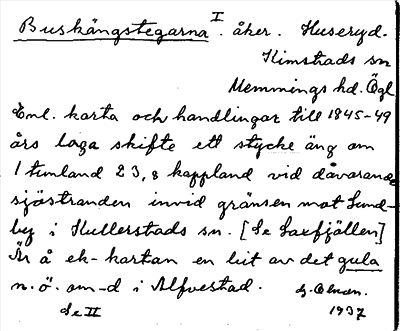 Buskängstegarna I. åker. Huseryd.
Kimstads sn
Memmings hd. Ögl
Enl. karta och handlingar till 1845-49
års laga skifte ett stycke äng om
1 tunland 23,8 kappland vid dåvarande
sjöstranden invid gränsen mot Sund-
by i Kullerstads sn. [Se Laxfjällen]
Är å ek-kartan en bit av det gula
n.ö. om -d i Alfvestad.
Se II 1937